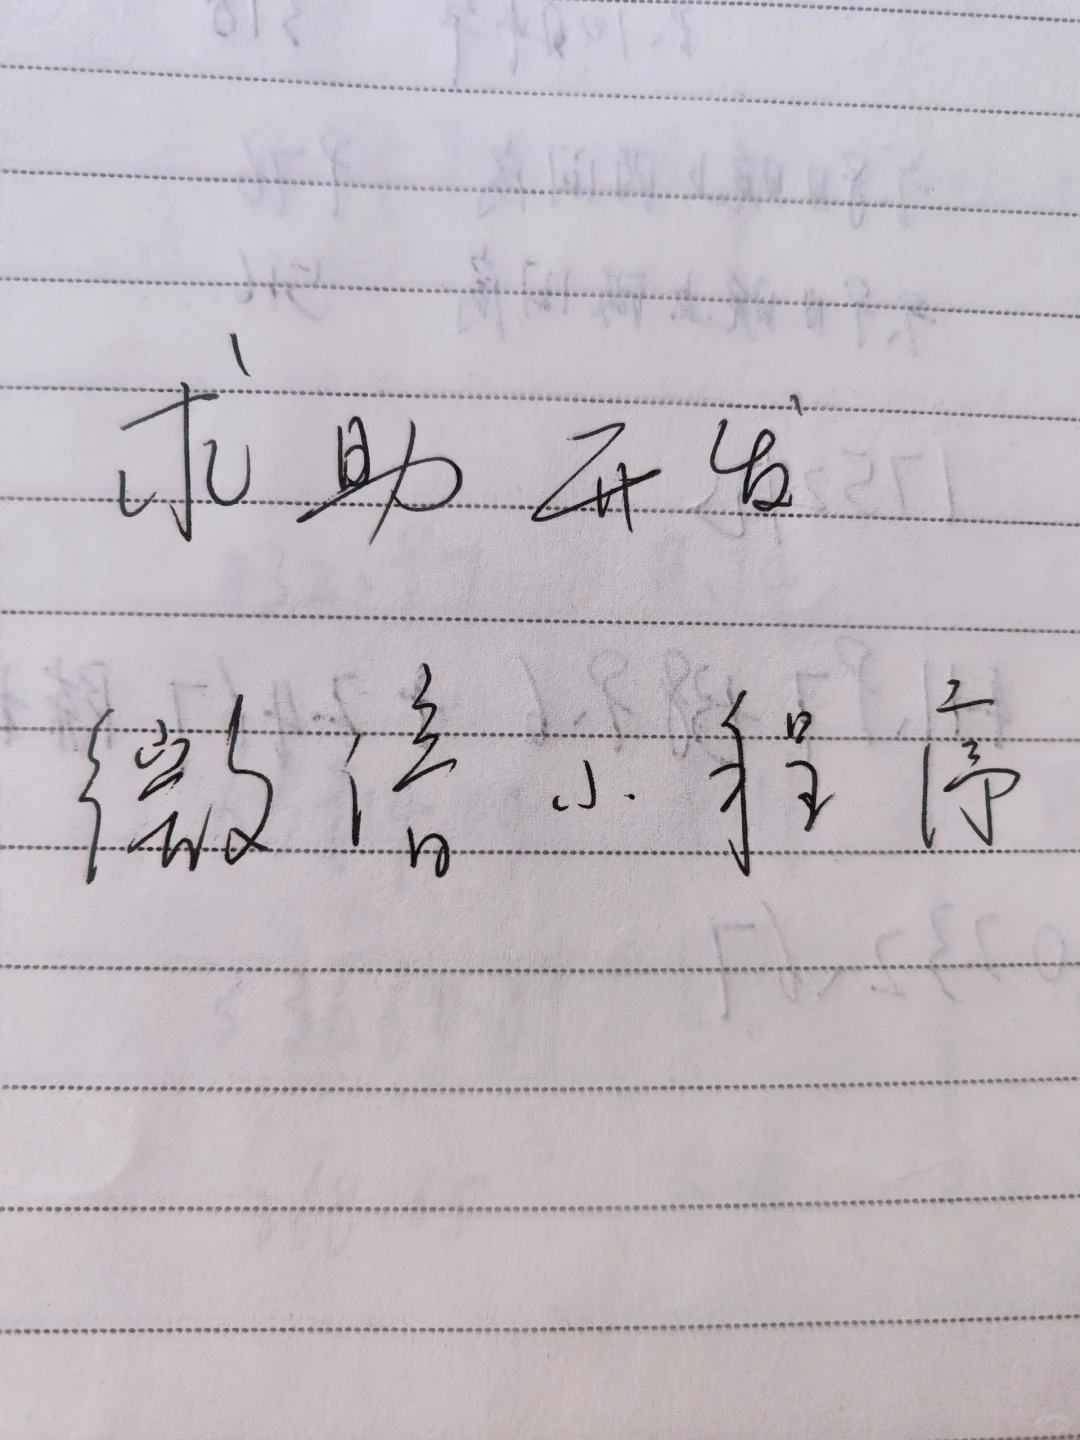 求助开发
微信小程序